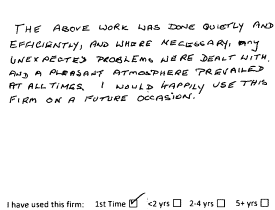 THE ABOVE WORK WAS DONE QUIETLY AND
EFFICIENTLY, AND WHERE NECESSARY, any
UNEXPECTED PROBLEMS WERE DEALT WITH,
AND A PLEASANT ATMOSPHERE PREVAILED
AT ALL TIMES. I WOULD HAPPILY USE THIS
FIRM ON A FUTURE OCCASION.
I have used this firm: 1st Time ☑ <2 yrs ☐ 2-4 yrs ☐ 5+ yrs ☐